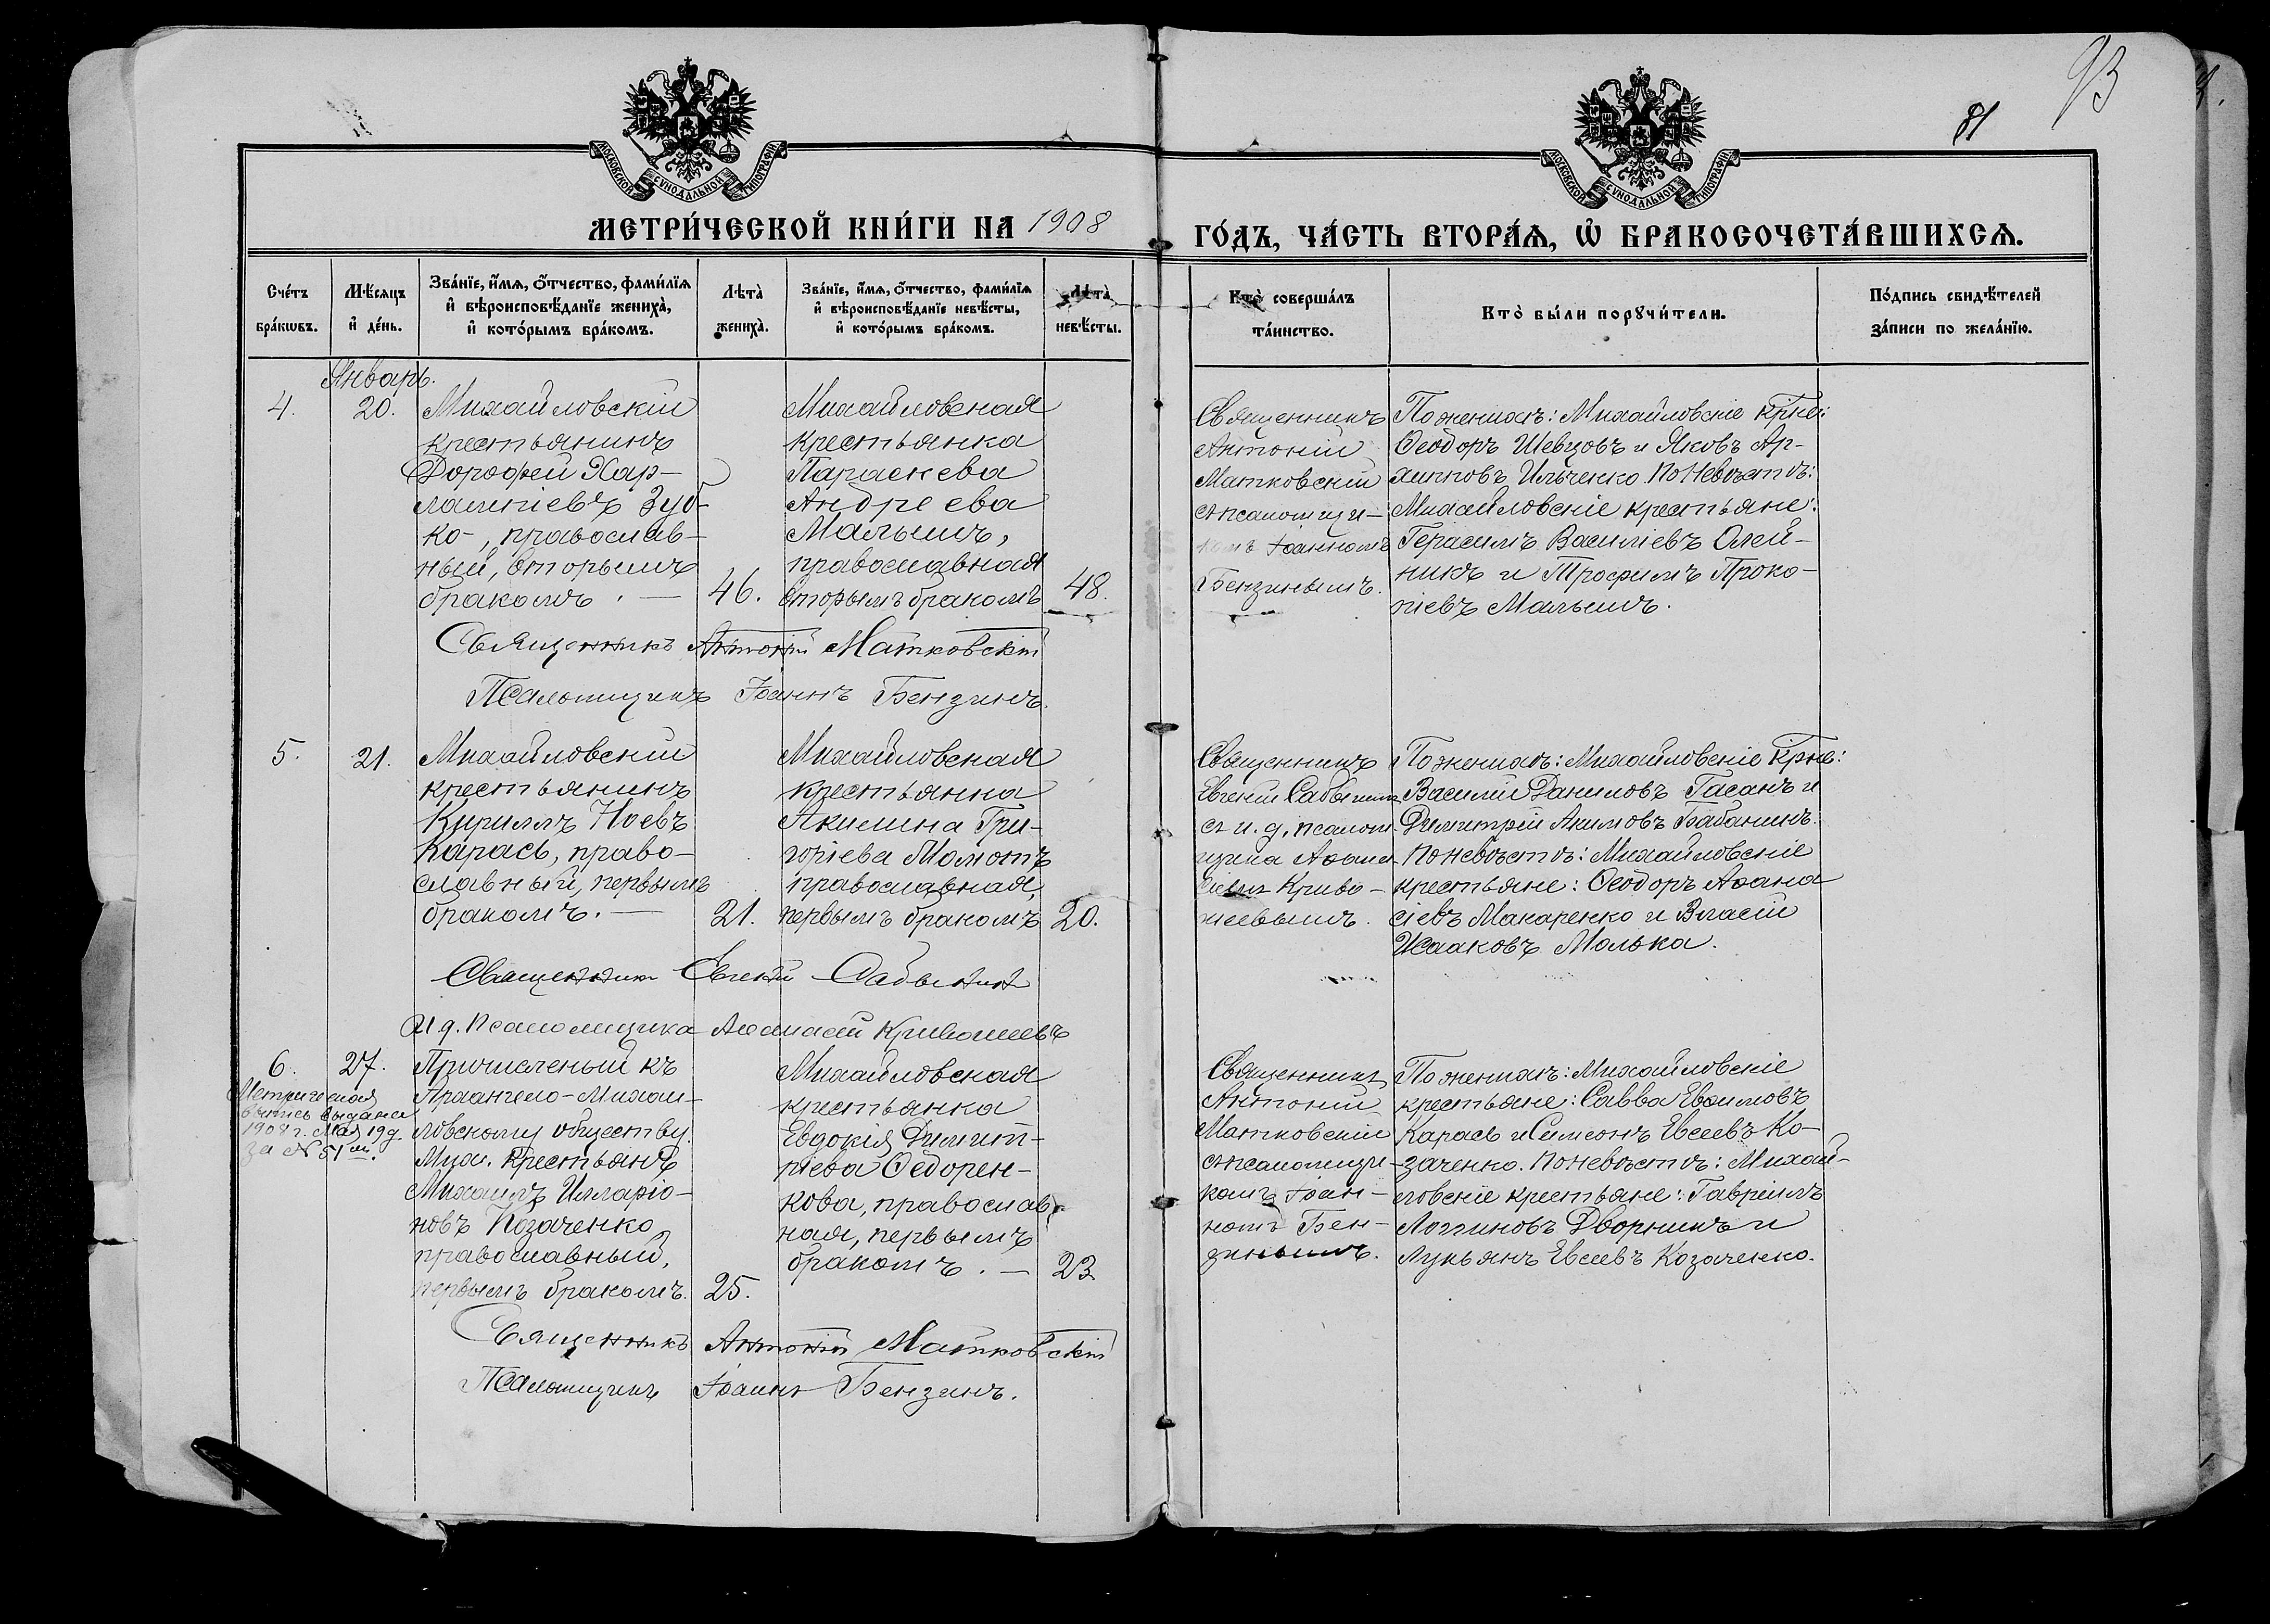 93
81
МОСКОВСКОЙ СѴНОДАЛЬНОЙ ТИПОГРАФІИ
МОСКОВСКОЙ СѴНОДАЛЬНОЙ ТИПОГРАФІИ
МЕТРИ́ЧЕСКОЙ КНИ́ГИ НА 1908
ГО́ДЪ, ЧА́СТЬ ВТОРА́Ѧ, Ѡ҆ БРАКОСОЧЕТА́ВШИХСѦ.
Сче́тъ
бра́кѡвъ.
Мѣ́сѧцъ
и҆ де́нь.
Зва́нїе, и҆́мѧ, ѻ҆́тчество, фами́лїѧ
и҆ вѣроисповѣ́данїе жениха̀,
и҆ кото́рымъ бра́комъ.
Лѣта̀
жениха̀.
Зва́нїе, и҆́мѧ, ѻ҆́тчество, фами́лїѧ
и҆ вѣроисповѣ́данїе невѣ́сты,
и҆ кото́рымъ бра́комъ.
Лѣта̀
невѣ́сты.
Кто̀ соверша́лъ
та́инство.
Кто̀ бы́ли порꙋчи́тели.
По́дпись свидѣ́телей
за́писи по жела́нїю.
Январь.
4.
20.
Михайловскій
крестьянинъ
Дорофей Хар-
лампіевъ Зуб-
ко-, православ-
ный, вторымъ
бракомъ. —
46.
Михайловская
крестьянка
Параскева
Андреева
Малышъ,
православная
вторымъ бракомъ
48.
Священникъ
Антоній
Матковскій
съ псаломщи-
комъ Іоанномъ
Бензинымъ.
По женихѣ: Михайловскіе крне:
Ѳеодоръ Шевцовъ и Яковъ Ар-
хиповъ Ильченко. По невѣстѣ:
Михайловскіе крестьяне:
Герасимъ Василіевъ Олей-
никъ и Трофимъ Проко-
піевъ Малышъ.
Священникъ Антоній Матковскій
Псаломщикъ Іоаннъ Бензинъ.
5.
21.
Михайловскій
крестьянинъ
Кириллъ Ноевъ
Карась, право-
славный, первымъ
бракомъ. —
21.
Михайловская
крестьянка
Акилина Гри-
горіева Мамотъ
православная,
первымъ бракомъ
20.
Священникъ
Евгеній
съ и. д. псалом-
щика Аѳана-
сіемъ Криво-
шеевымъ.
По женихѣ: Михайловскіе крне:
Василій Даниловъ Гасанъ и
Димитрій Акимовъ Бабанинъ.
По невѣстѣ: Михайловскіе
крестьяне: Ѳеодоръ Аѳана
сіевъ Макаренко и Власій
Исааковъ Молька.
Священникъ Евгеній
И д. Псаломщика Аѳанасій Кривошеевъ
6.
27.
Метрическая
выпись выдана
1908 г. Мая 19 д.
за № 51 ым.
Причисленый къ
Архангело-Михай-
ловскому обществу
крестьянъ
Михаилъ Илларіо-
новъ Козаченко
православный,
первымъ бракомъ.
25.
Михайловская
крестьянка
Евдокія Димит-
ріева Ѳедорен-
кова, православ-
ная, первымъ
бракомъ. —
23
Священникъ
Антоній
Матковскій
съ псаломщи-
комъ Іоан-
номъ Бен-
зинымъ.
По женихѣ: Михайловскіе
крестьяне: Савва Евѳимовъ
Карась и Симеонъ Евсеевъ Ко-
заченко. По невѣстѣ: Михай-
ловскіе крестьяне: Гавріилъ
Логиновъ Дворникъ и
Лукьянъ Евсеевъ Козаченко.
Священникъ Антоній Матковскій
Псаломщикъ Іоаннъ Бензинъ.